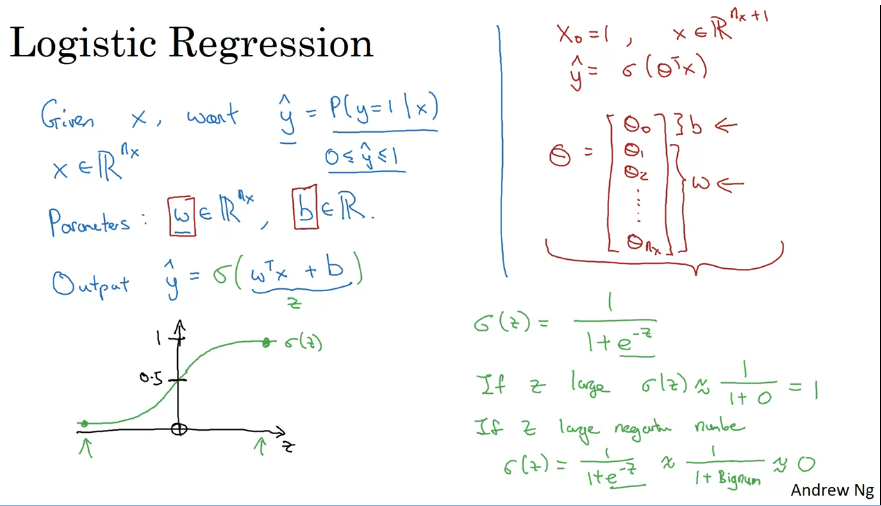 Logistic Regression
Given x, want ŷ = P(y=1|x)
x ∈ ℝⁿˣ
0 ≤ ŷ ≤ 1
Parameters: w ∈ ℝⁿˣ, b ∈ ℝ.
Output ŷ = σ(wᵀx + b)
z
1
0.5
σ(z)
z
x₀ = 1, x ∈ ℝⁿˣ⁺¹
ŷ = σ(θᵀx)
θ = [
θ₀ } b ←
θ₁
θ₂
⋮ } w ←
θₙₓ ]
σ(z) = 1 / (1 + e⁻ᶻ)
If z large σ(z) ≈ 1 / (1 + 0) = 1
If z large negative number
σ(z) = 1 / (1 + e⁻ᶻ) ≈ 1 / (1 + Bignum) ≈ 0
Andrew Ng